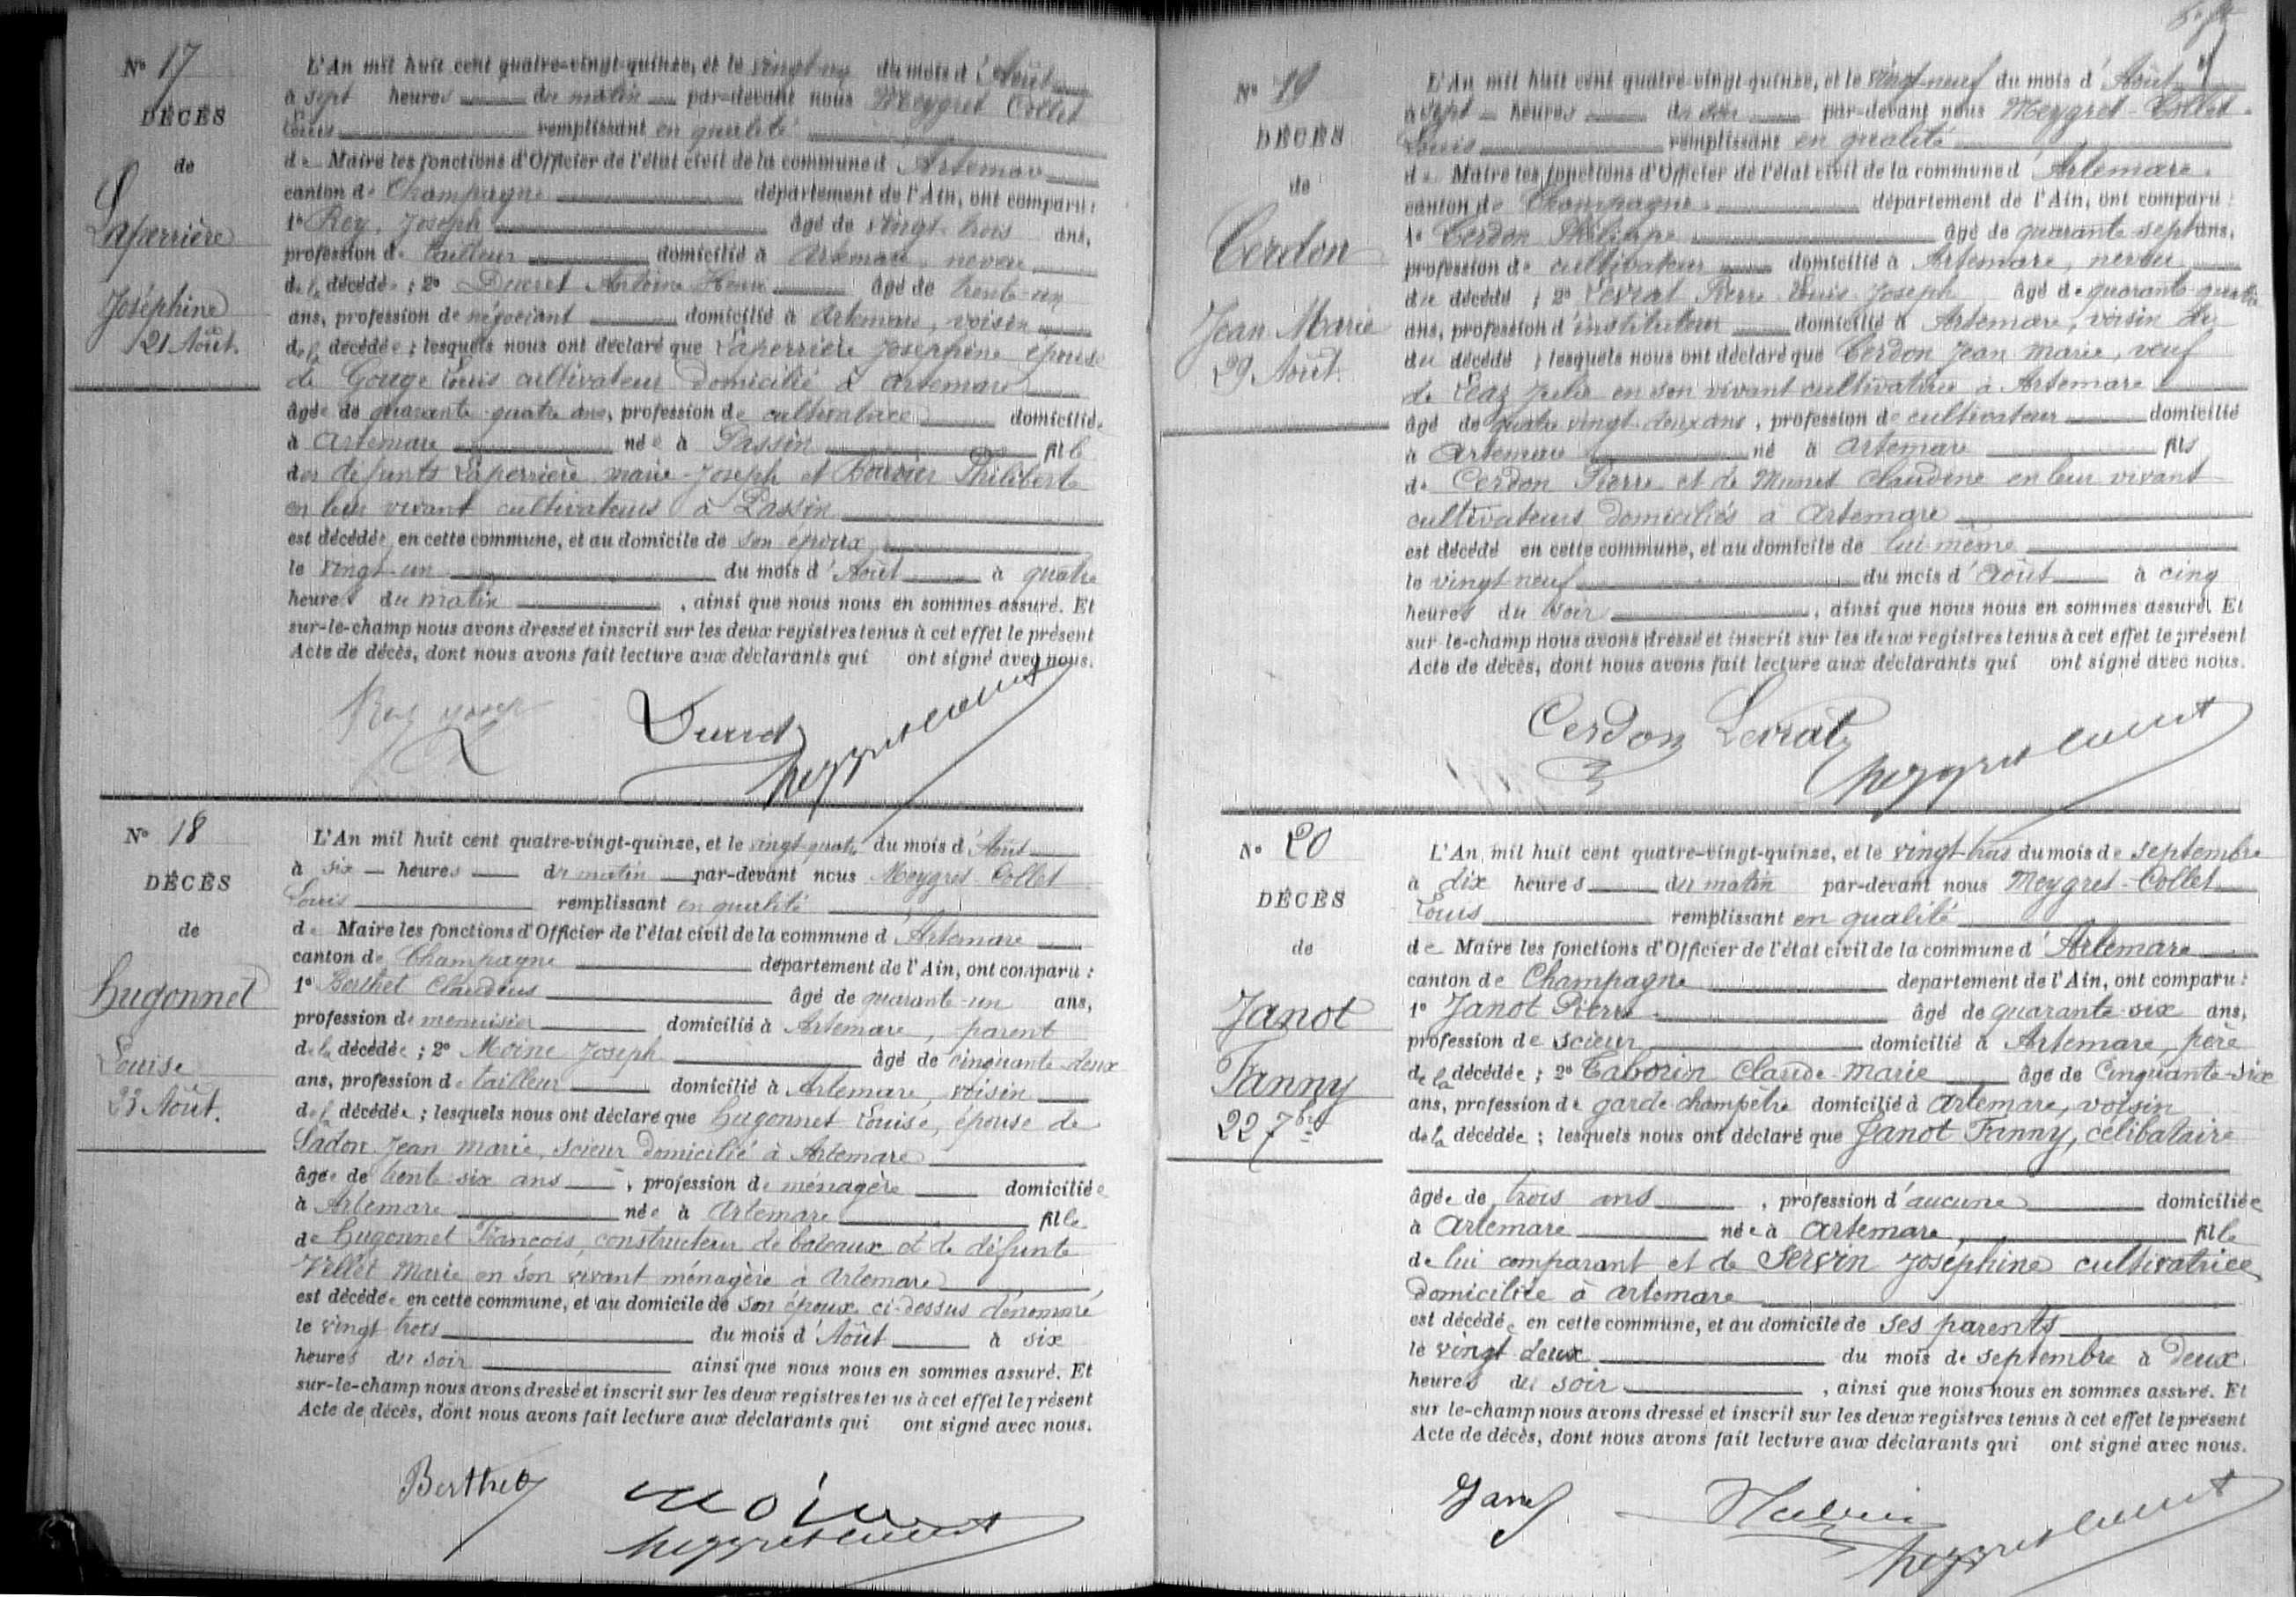 Nº 17
DÉCÈS
de
Laperrière
Joséphine
21 Août.
L'An mil huit cent quatre-vingt-quinze, et le vingt-un du mois d'Août
à sept heures du matin par-devant nous Meygret Collet
Louis remplissant en qualité
de Maire les fonctions d'Officier de l'état civil de la commune d'Artemare
canton de Champagne département de l'Ain, ont comparu :
1º Rey Joseph âgé de vingt-trois ans,
profession de tailleur domicilié à Artemare, neveu
de la décédée ; 2º Ducret Antoine âgé de trente-un
ans, profession de négociant domicilié à Artemare, voisin
de la décédée ; lesquels nous ont déclaré que Laperrière Joséphine épouse
de Gouge Louis cultivateur domicilié à Artemare
âgée de quarante-quatre ans, profession de cultivatrice domiciliée
à Artemare née à Passin fille
des defunts Laperrière Marie-Joseph et Bouvier Philiberte
en leur vivant cultivateurs à Passin
est décédée en cette commune, et au domicile de son époux
le vingt-un du mois d'Août à quatre
heures du matin , ainsi que nous nous en sommes assuré. Et
sur-le-champ nous avons dressé et inscrit sur les deux registres tenus à cet effet le présent
Acte de décès, dont nous avons fait lecture aux déclarants qui ont signé avec nous.
Rey Ducret
Meygretcollet
Nº 18
DÉCÈS
de
Hugonnet
Louise
23 Août.
L'An mil huit cent quatre-vingt-quinze, et le vingt-quatre du mois d'Août
à six heures du matin par-devant nous Meygret-Collet
Louis remplissant en qualité
de Maire les fonctions d'Officier de l'état civil de la commune d'Artemare
canton de Champagne département de l'Ain, ont comparu :
1º Berthet Claudius âgé de quarante-un ans,
profession de menuisier domicilié à Artemare, parent
de la décédée ; 2º Moine Joseph âgé de cinquante-deux
ans, profession de tailleur domicilié à Artemare, voisin
de la décédée ; lesquels nous ont déclaré que Hugonnet Louise, épouse de
Sadon Jean Marie, scieur domicilié à Artemare
âgée de trente-six ans , profession de ménagère domiciliée
à Artemare née à Artemare fille
de Hugonnet François, constructeur de bateaux et de défunte
Villet Marie en son vivant ménagère à Artemare
est décédée en cette commune, et au domicile de son époux ci-dessus dénommé
le vingt-trois du mois d'Août à six
heures du soir ainsi que nous nous en sommes assuré. Et
sur-le-champ nous avons dressé et inscrit sur les deux registres tenus à cet effet le présent
Acte de décès, dont nous avons fait lecture aux déclarants qui ont signé avec nous.
Berthet Moine
Meygretcollet
Nº 19
DÉCÈS
de
Cerdon
Jean Marie
29 Août.
L'An mil huit cent quatre-vingt-quinze, et le vingt-neuf du mois d'Août
à sept heures du soir par-devant nous Meygret-Collet
Louis remplissant en qualité
de Maire les fonctions d'Officier de l'état civil de la commune d'Artemare
canton de Champagne département de l'Ain, ont comparu :
1º Cerdon Philippe âgé de quarante-sept ans,
profession de cultivateur domicilié à Artemare, neveu
du décédé ; 2º Levrat Pierre Louis Joseph âgé de quarante-quatre
ans, profession d'instituteur domicilié à Artemare, voisin du
du décédé ; lesquels nous ont déclaré que Cerdon Jean Marie, veuf
de Julie en son vivant cultivatrice à Artemare
âgé de quatre-vingt-deux ans, profession de cultivateur domicilié
à Artemare né à Artemare fils
de Cerdon Pierre et de Munet Claudine en leur vivant
cultivateurs domiciliés à Artemare
est décédé en cette commune, et au domicile de lui-même
le vingt-neuf du mois d'Août à cinq
heures du soir , ainsi que nous nous en sommes assuré. Et
sur-le-champ nous avons dressé et inscrit sur les deux registres tenus à cet effet le présent
Acte de décès, dont nous avons fait lecture aux déclarants qui ont signé avec nous.
Cerdon Levrat
Meygretcollet
Nº 20
DÉCÈS
de
Janot
Fanny
22 7bre
L'An mil huit cent quatre-vingt-quinze, et le vingt-trois du mois de septembre
à dix heures du matin par-devant nous Meygret-Collet
Louis remplissant en qualité
de Maire les fonctions d'Officier de l'état civil de la commune d'Artemare
canton de Champagne département de l'Ain, ont comparu :
1º Janot Pierre âgé de quarante-six ans,
profession de scieur domicilié à Artemare, père
de la décédée ; 2º Taborin Claude-Marie âgé de cinquante-six
ans, profession de garde-champêtre domicilié à Artemare, voisin
de la décédée ; lesquels nous ont déclaré que Janot Fanny, célibataire
âgée de trois ans , profession d'aucune domiciliée
à Artemare née à Artemare fille
de lui comparant et de Servin Joséphine cultivatrice
domiciliée à Artemare
est décédée en cette commune, et au domicile de ses parents
le vingt-deux du mois de septembre à deux
heures du soir , ainsi que nous nous en sommes assuré. Et
sur le-champ nous avons dressé et inscrit sur les deux registres tenus à cet effet le présent
Acte de décès, dont nous avons fait lecture aux déclarants qui ont signé avec nous.
Janot
Meygretcollet